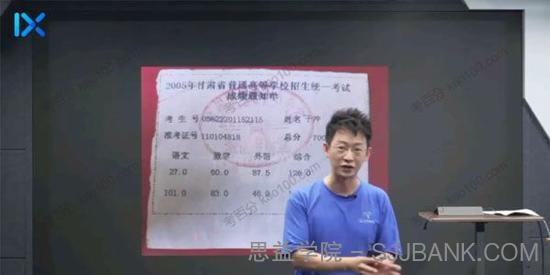 IX
2005年甘肃省普通高等学校招生统一考试
成绩通知单
考生号 05622201152115 姓名
准考证号 110104818 总分 700
语文 数学 外语 综合
27.0 60.0 87.5 126.0
101.0 83.0 46.0
考百分 kao100.com
思益学院 - SJJBANK.COM